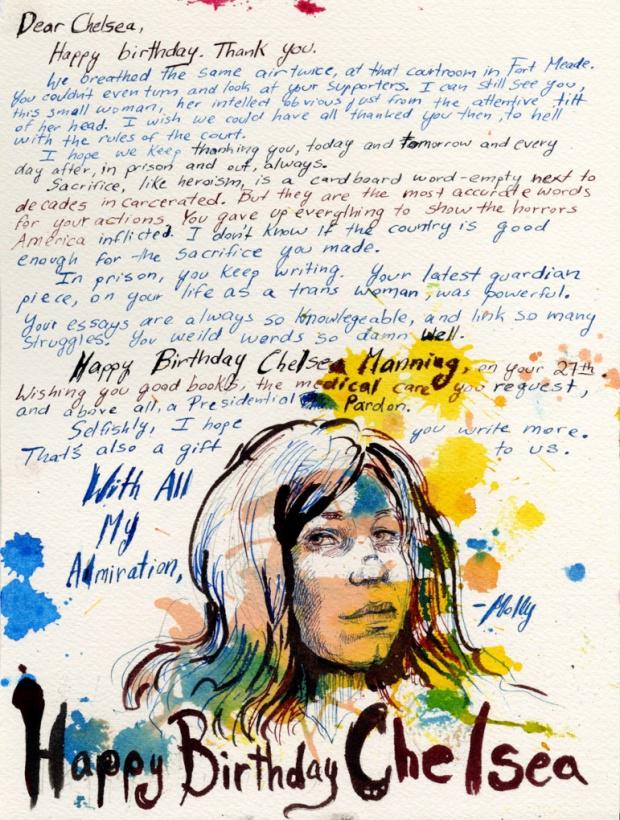 Dear Chelsea,
Happy birthday. Thank you.
We breathed the same air twice, at that courtroom in Fort Meade.
You couldn't even turn and look at your supporters. I can still see you,
this small woman, her intelled obvious just from the attentive tilt
of her head. I wish we could have all thanked you then, to hell
with the rules of the court.
I hope we keep thanking you, today and tomorrow and every
day after, in prison and out, always.
Sacrifice, like heroism, is a cardboard word-empty next to
decades incarcerated. But they are the most accurate words
for your actions. You gave up everything to show the horrors
America inflicted. I don't know if the country is good
enough for the sacrifice you made.
In prison, you keep writing. Your latest guardian
piece, on your life as a trans woman, was powerful.
Your essays are always so knowlegeable, and link so many
struggles. You weild words so damn well.
Happy Birthday Chelsea Manning, on your 27th.
Wishing you good books, the medical care you request,
and above all, a Presidential Pardon.
Selfishly, I hope you write more.
That's also a gift to us.
With All
My
Admiration,
-Molly
Happy Birthday Chelsea